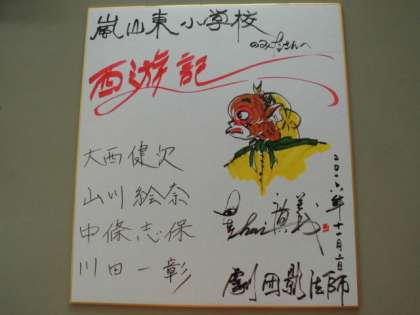 嵐山東小学校
のみなさんへ
西游記
大西健次
山川絵奈
中條志保
川田一彰
二〇〇六年十一月二日
劇団影法師